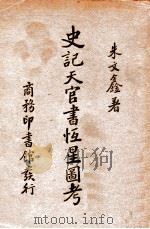 朱文鑫著
史記天官書恆星圖考
商務印書館發行
www.modtu.com